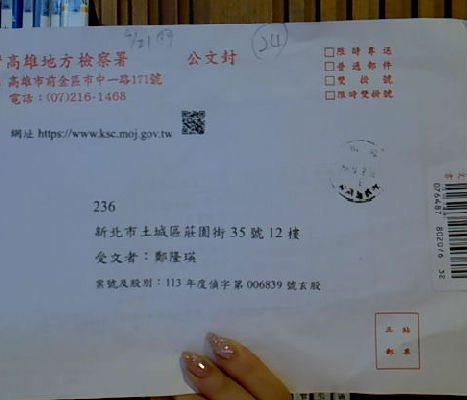 4/21
24
高雄地方檢察署 公文封
高雄市前金區市中一路171號
電話：(07)216-1468
□限時專送
□普通郵件
□雙掛號
□限時雙掛號
網址 https://www.ksc.moj.gov.tw
236
新北市土城區莊園街 35 號 12 樓
受文者：鄭隆瑛
案號及股別：113 年度偵字第 006839 號玄股